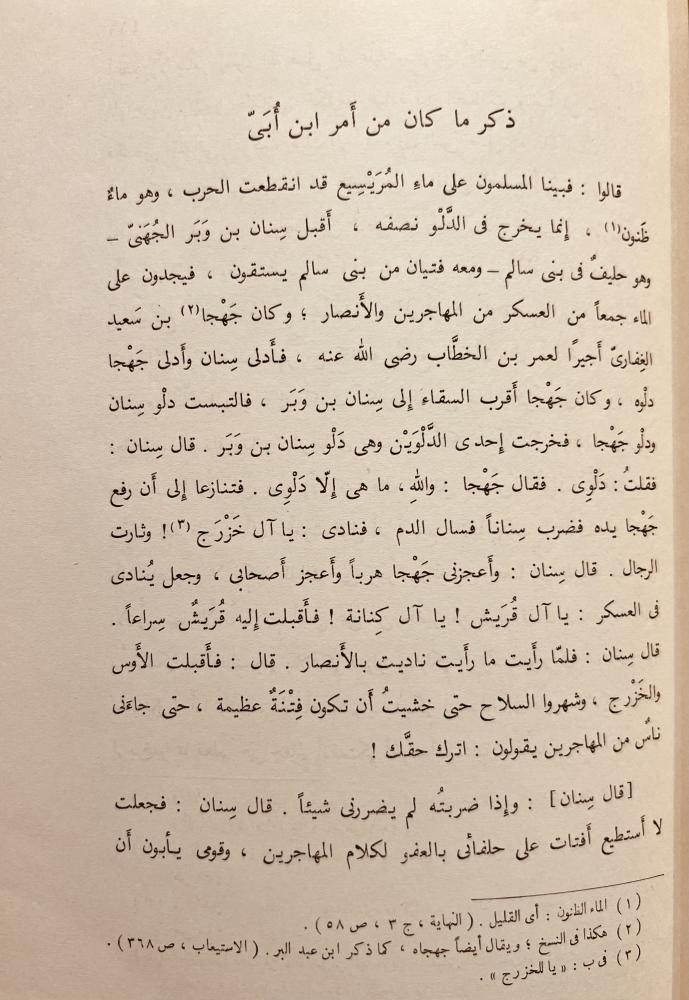 ذكر ما كان من أَمر ابن أُبَىّ
قالوا : فبينا المسلمون على ماءِ المُرَيْسِيع قد انقطعت الحرب ، وهو ماءٌ
ظَنون(١) ، إِنما يخرج فى الدَّلْو نصفه ، أَقبل سِنان بن وَبَر الجُهَنىّ –
وهو حليفٌ فى بنى سالم – ومعه فتيان من بنى سالم يستقون ، فيجدون على
الماء جمعاً من العسكر من المهاجرين والأَنصار ؛ وكان جَهْجا(٢) بن سَعيد
الغِفارىّ أَجيرًا لعمر بن الخطَّاب رضى الله عنه ، فأَدلى سِنان وأَدلى جَهْجا
دلْوه ، وكان جَهْجا أَقرب السقاء إِلى سِنان بن وَبَر ، فالتبست دلْو سِنان
ودلْو جَهْجا ، فخرجت إِحدى الدَّلْوَيْن وهى دَلْو سِنان بن وَبَر . قال سِنان :
فقلتُ : دَلْوِى . فقال جَهْجا : واللهِ، ما هى إِلّا دَلْوِى . فتنازعا إِلى أَن رفع
جَهْجا يده فضرب سِناناً فسال الدم ، فنادى : يا آل خَزْرَج (٣)! وثارت
الرجال . قال سِنان : وأَعجزنى جَهْجا هرباً وأَعجز أَصحابى ، وجعل يُنادى
فى العسكر : يا آل قُرَيش ! يا آل كِنانة ! فأَقبلت إِليه قُرَيشٌ سِراعاً .
قال سِنان : فلمّا رأَيت ما رأَيت ناديت بالأَنصار . قال : فأَقبلت الأَوس
والخَزْرج ، وشهروا السلاح حتى خشيتُ أَن تكون فِتْنَةٌ عظيمة ، حتى جاءَنى
ناسٌ من المهاجرين يقولون : اترك حقَّك !
[قال سِنان] : وإِذا ضربتُه لم يضررنى شيئاً . قال سِنان : فجعلت
لا أَستطيع أَفتات على حلفائى بالعفو لكلام المهاجرين ، وقومى يأبون أَن
(١) الماء الظنون : أى القليل . (النهاية ، ج ٣ ، ص ٥٨) .
(٢) هكذا فى النسخ ؛ ويقال أيضاً جهجاه ، كما ذكر ابن عبد البر . (الاستيعاب ، ص ٣٦٨) .
(٣) فى ب : « يا للخزرج » .